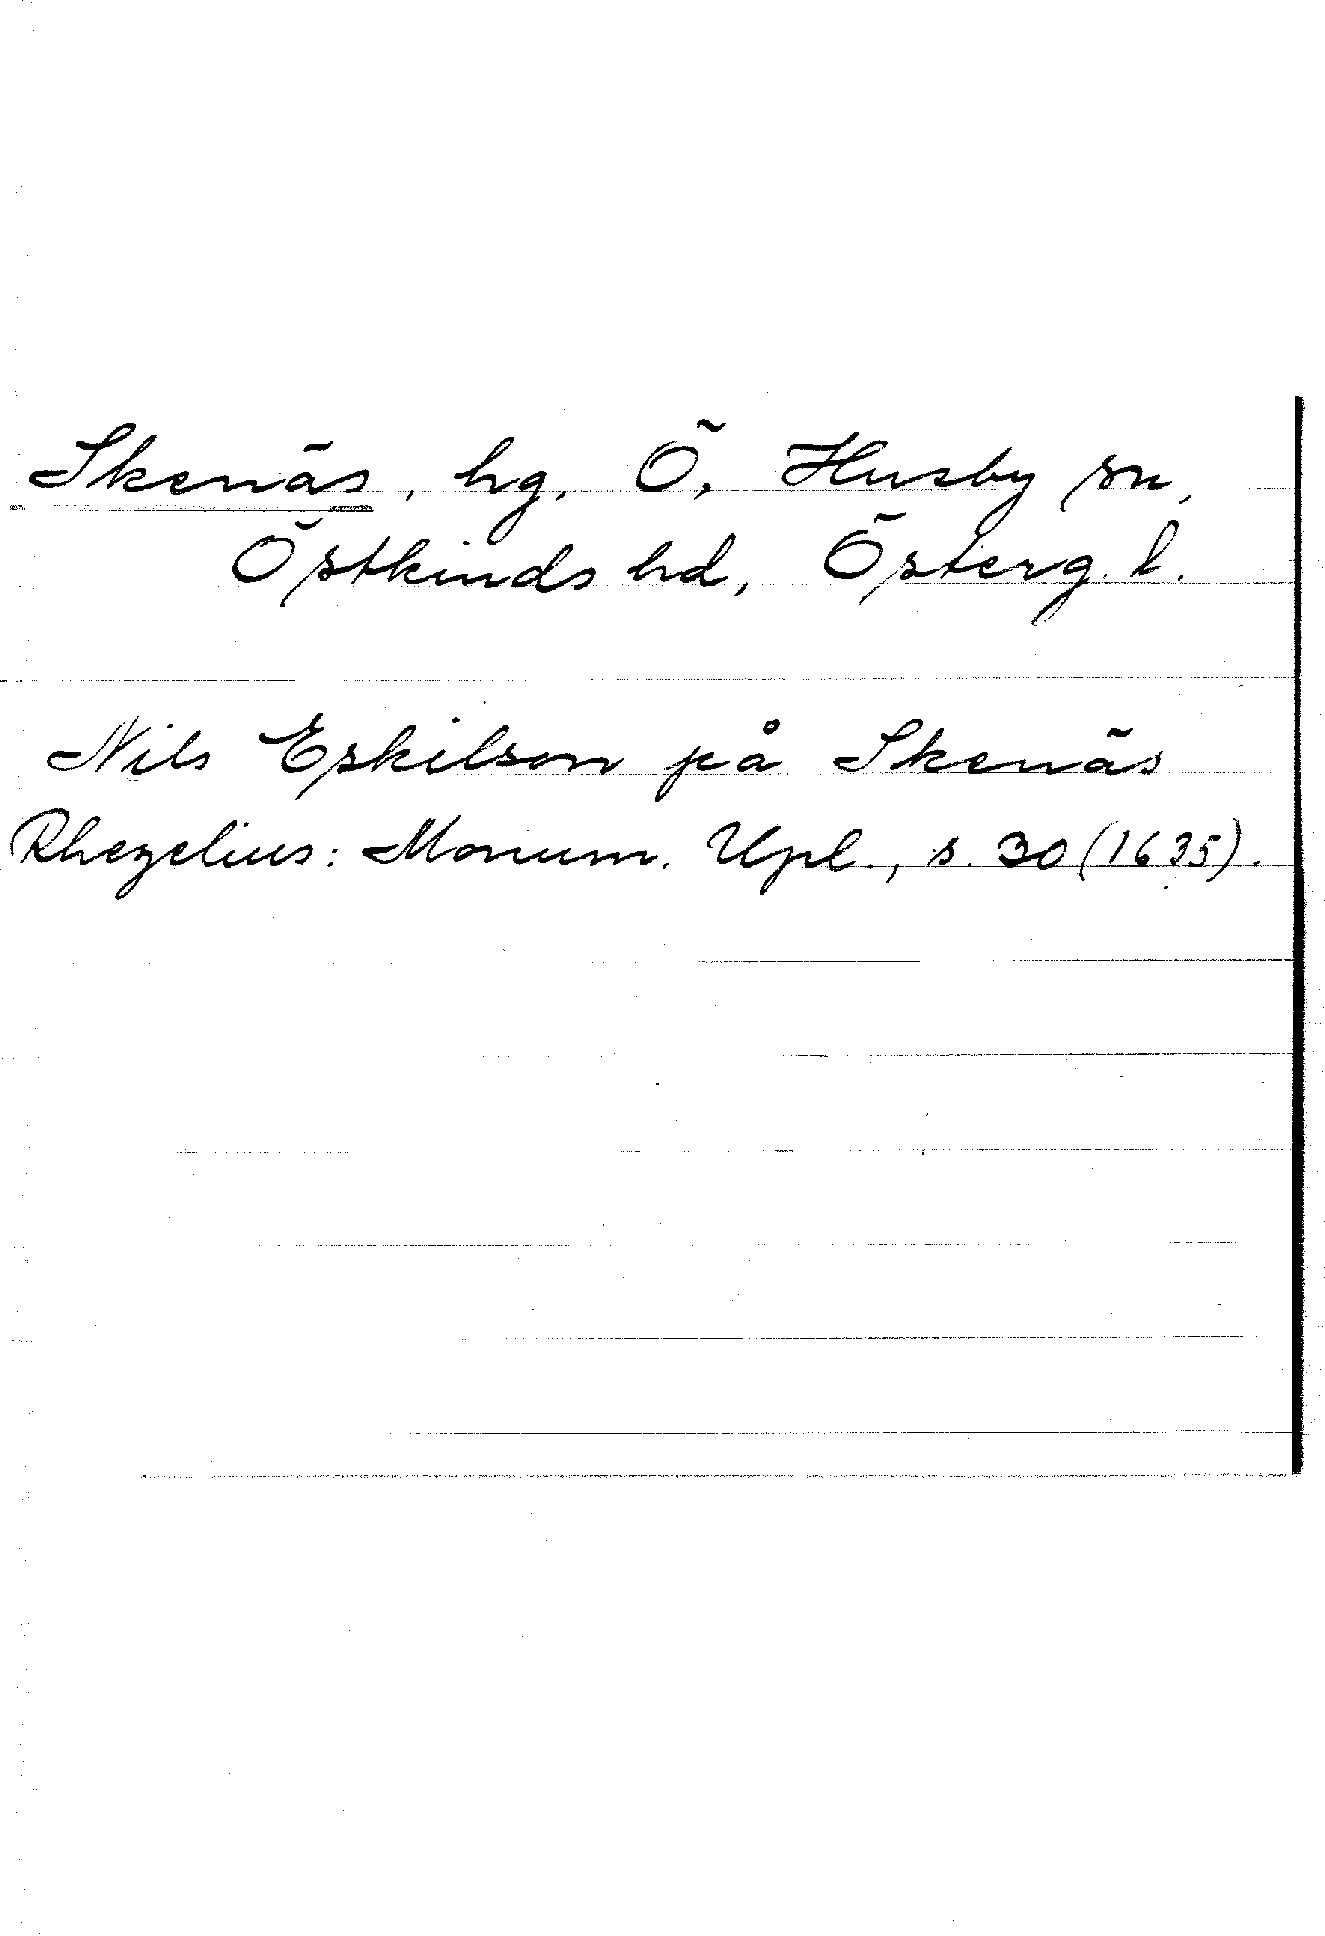 Skenäs, hg, Ö. Husby sn,
Östkinds hd, Österg. l.
Nils Eskilson på Skenäs
Rhezelius: Monum. Upl., s. 30 (1635).